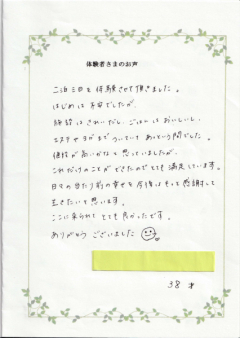 体験者さまのお声
二泊三日を体験させて頂きました。
はじめは不安でしたが、
施設はきれいだし、ごはんはおいしいし、
エステやヨガまでついていてあっという間でした。
価格が高いかなと思っていましたが、
これだけのことができたのでとても満足しています。
日々の当たり前の幸せを今後はもって感謝して
生きたいと思います。
ここに来られてとても良かったです。
ありがとうございました
38才